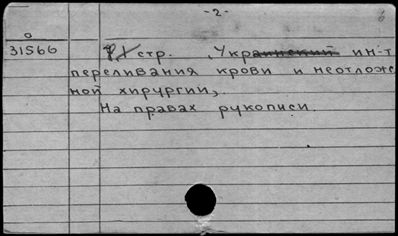 -2-
о
31566 стр. Украинский ин-т
переливания крови и неотлож
ной хирургии,.
На правах рукописи.